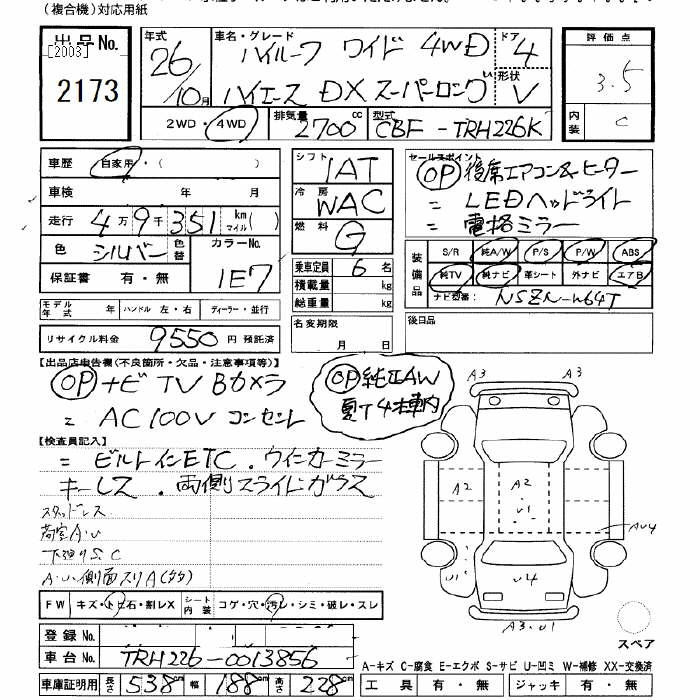 (複合機)対応用紙
出品No. 年式 車名・グレード ハイルーフ ワイド 4WD ドア 4 評価点
[2003] 26/10月 ハイエース DX スーパーロング 形状 V 3.5
2173 2WD・4WD 排気量 2700cc 型式 CBF-TRH226K 内装 C
車歴 自家用・( ) シフト IAT セールスポイント OP 後席エアコン&ヒーター
車検 年 月 冷房 WAC = LEDヘッドライト
走行 4万9千351 km マイル( ) 燃料 G = 電格ミラー
色 シルバー 色替 カラーNo. 1E7 乗車定員 6名 装備品 S/R 純A/W P/S P/W ABS
保証書 有・無 積載量 kg 純TV 純ナビ 革シート 外ナビ エアB
総重量 kg ナビ型番: NSZN-W64T
モデル年式 年 ハンドル 左・右 ディーラー・並行 名変期限 月 日 後日品
リサイクル料金 9550 円 預託済
【出品店申告欄(不良箇所・欠品・注意事項等)】
OP ナビ TV Bカメラ OP 純正AW
= AC100V コンセント 夏T4本車内
【検査員記入】
= ビルトインETC . ウインカーミラー
キーレス . 両側スライドガラス
スタッドレス
荷室A・U
下廻りS.C
A・U側面スリA(多多)
A3 A3
A2 A2 U1 AU4
U1 U4
A3.U1
FW キズ・トビ石・割レX シート内装 コゲ・穴・汚レ・シミ・破レ・スレ
登録No.
車台No. TRH226-0013856 スペア
A-キズ C-腐食 E-エクボ S-サビ U-凹ミ W-補修 XX-交換済
車庫証明用 長さ 538cm 幅 188cm 高さ 228cm 工具 有・無 ジャッキ 有・無